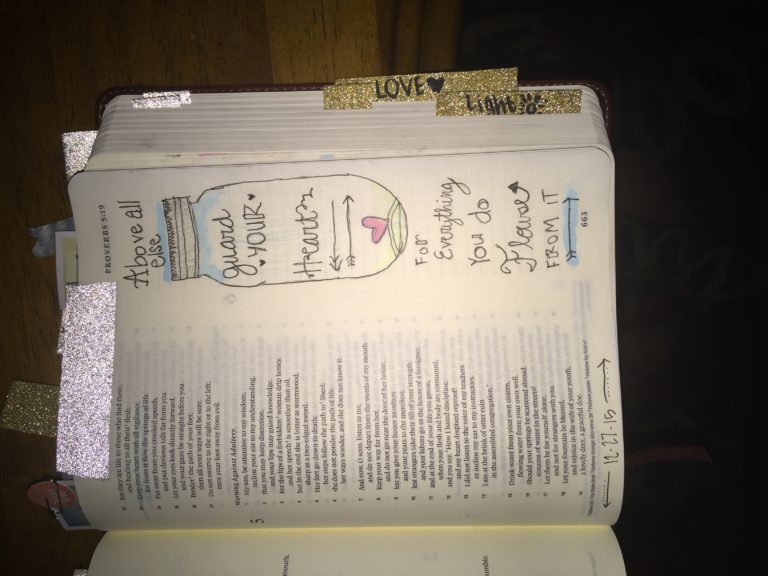 LOVE
Light
PROVERBS 5:19
Above all
else
guard
YOUR
Heart
For
Everything
You do
Flows
FROM IT
663
22 For they are life to those who find them,
and healing to all their flesh.
23 Keep your heart with all vigilance,
for from it flow the springs of life.
24 Put away from you crooked speech,
and put devious talk far from you.
25 Let your eyes look directly forward,
and your gaze be straight before you.
26 Ponder the path of your feet;
then all your ways will be sure.
27 Do not swerve to the right or to the left;
turn your foot away from evil.
Warning Against Adultery
5
1 My son, be attentive to my wisdom;
incline your ear to my understanding,
2 that you may keep discretion,
and your lips may guard knowledge.
3 For the lips of a forbidden woman drip honey,
and her speech is smoother than oil,
4 but in the end she is bitter as wormwood,
sharp as a two-edged sword.
5 Her feet go down to death;
her steps follow the path to Sheol;
6 she does not ponder the path of life;
her ways wander, and she does not know it.
7 And now, O sons, listen to me,
and do not depart from the words of my mouth.
8 Keep your way far from her,
and do not go near the door of her house,
9 lest you give your honor to others
and your years to the merciless,
10 lest strangers take their fill of your strength,
and your labors go to the house of a foreigner,
11 and at the end of your life you groan,
when your flesh and body are consumed,
12 and you say, "How I hated discipline,
and my heart despised reproof!
13 I did not listen to the voice of my teachers
or incline my ear to my instructors.
14 I am at the brink of utter ruin
in the assembled congregation."
15 Drink water from your own cistern,
flowing water from your own well.
16 Should your springs be scattered abroad,
streams of water in the streets?
17 Let them be for yourself alone,
and not for strangers with you.
18 Let your fountain be blessed,
and rejoice in the wife of your youth,
19 a lovely deer, a graceful doe.
12-27-15
mouth,